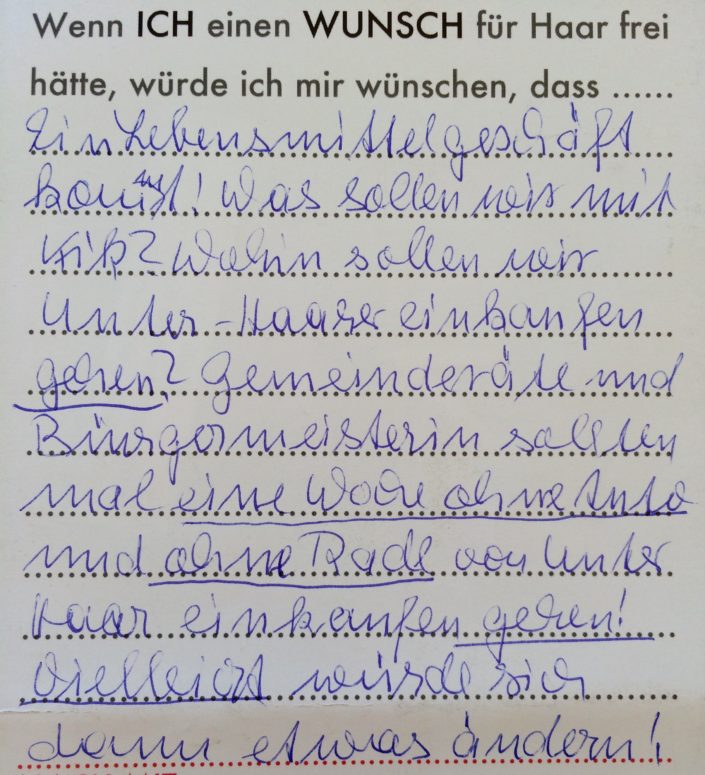 Wenn ICH einen WUNSCH für Haar frei
hätte, würde ich mir wünschen, dass ......
Ein Lebensmittelgeschäft
kommt! Was sollen wir mit
KiK? Wohin sollen wir
Unter-Haarer einkaufen
gehen? Gemeinderäte und
Bürgermeisterin sollten
mal eine Woche ohne Auto
und ohne Radl von Unter
Haar einkaufen gehen!
Vielleicht würde sich
dann etwas ändern!